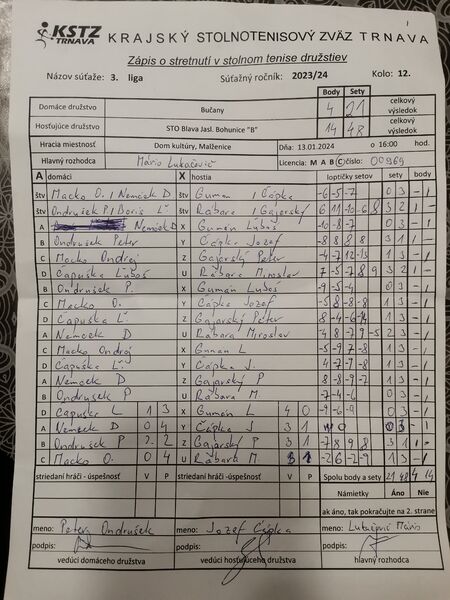 KSTZ TRNAVA KRAJSKÝ STOLNOTENISOVÝ ZVÄZ TRNAVA
Zápis o stretnutí v stolnom tenise družstiev
Názov súťaže: 3. liga Súťažný ročník: 2023/24 Kolo: 12.
Body Sety
Domáce družstvo Bučany 4 21 celkový výsledok
Hosťujúce družstvo STO Blava Jasl. Bohunice "B" 14 48 celkový výsledok
Hracia miestnosť Dom kultúry, Malženice Dňa: 13.01.2024 o 16:00 hod.
Hlavný rozhodca Mário Lukačovič Licencia: M A B C číslo: 00969
A domáci X hostia loptičky setov sety body
štv Macko O. / Nemček D štv Guman / Čápka -6 -5 -7 0 3 - 1
štv Ondrušek P / Boris Ľ štv Rábara / Gajarský 6 11 -10 -6 8 3 2 1 -
A Nemček D X Gumán Ľuboš -10 -8 -7 0 3 - 1
B Ondrušek Peter Y Čápka Jozef -8 8 8 8 3 1 1 -
C Macko Ondrej Z Gajarský Peter -4 -7 12 -13 1 3 - 1
D Capuška Ľuboš U Rábara Miroslav 7 -5 -7 8 9 3 2 1 -
B Ondrušek P. X Gumán Luboš -9 -5 -4 0 3 - 1
C Macko O. Y Čápka Jozef -5 8 -8 -8 1 3 - 1
D Capuška Ľ Z Gajarský Peter 8 -4 -6 1 3 - 1
A Nemček D U Rábara Miroslav -4 8 -7 9 -5 2 3 - 1
C Macko Ondrej X Guman L -5 -9 7 -8 1 3 - 1
D Capuška Ľ. Y Čápka J. 4 -7 -9 -8 1 3 - 1
A Nemček D Z Gajarský P 8 -8 -9 -7 1 3 - 1
B Ondrušek P U Rábara M. -7 -4 -6 0 3 - 1
D Capuška L 1 3 X Gumán L 4 0 -9 -6 -9 0 3 - 1
A Nemček D 0 4 Y Čápka J 3 1 0 3 - 1
B Ondrušek P 2 2 Z Gajarský P 3 1 -7 8 9 8 3 1 1 -
C Macko O. 0 4 U Rábara M. 3 1 -2 6 -2 -9 1 3 - 1
striedaní hráči - úspešnosť V P striedaní hráči - úspešnosť V P Spolu body a sety 21 48 4 14
Námietky Áno Nie
ak áno, tak pokračujte na 2. strane
meno: Peter Ondrušek meno: Jozef Čápka meno: Mário
podpis: podpis: podpis:
vedúci domáceho družstva vedúci hosťujúceho družstva hlavný rozhodca